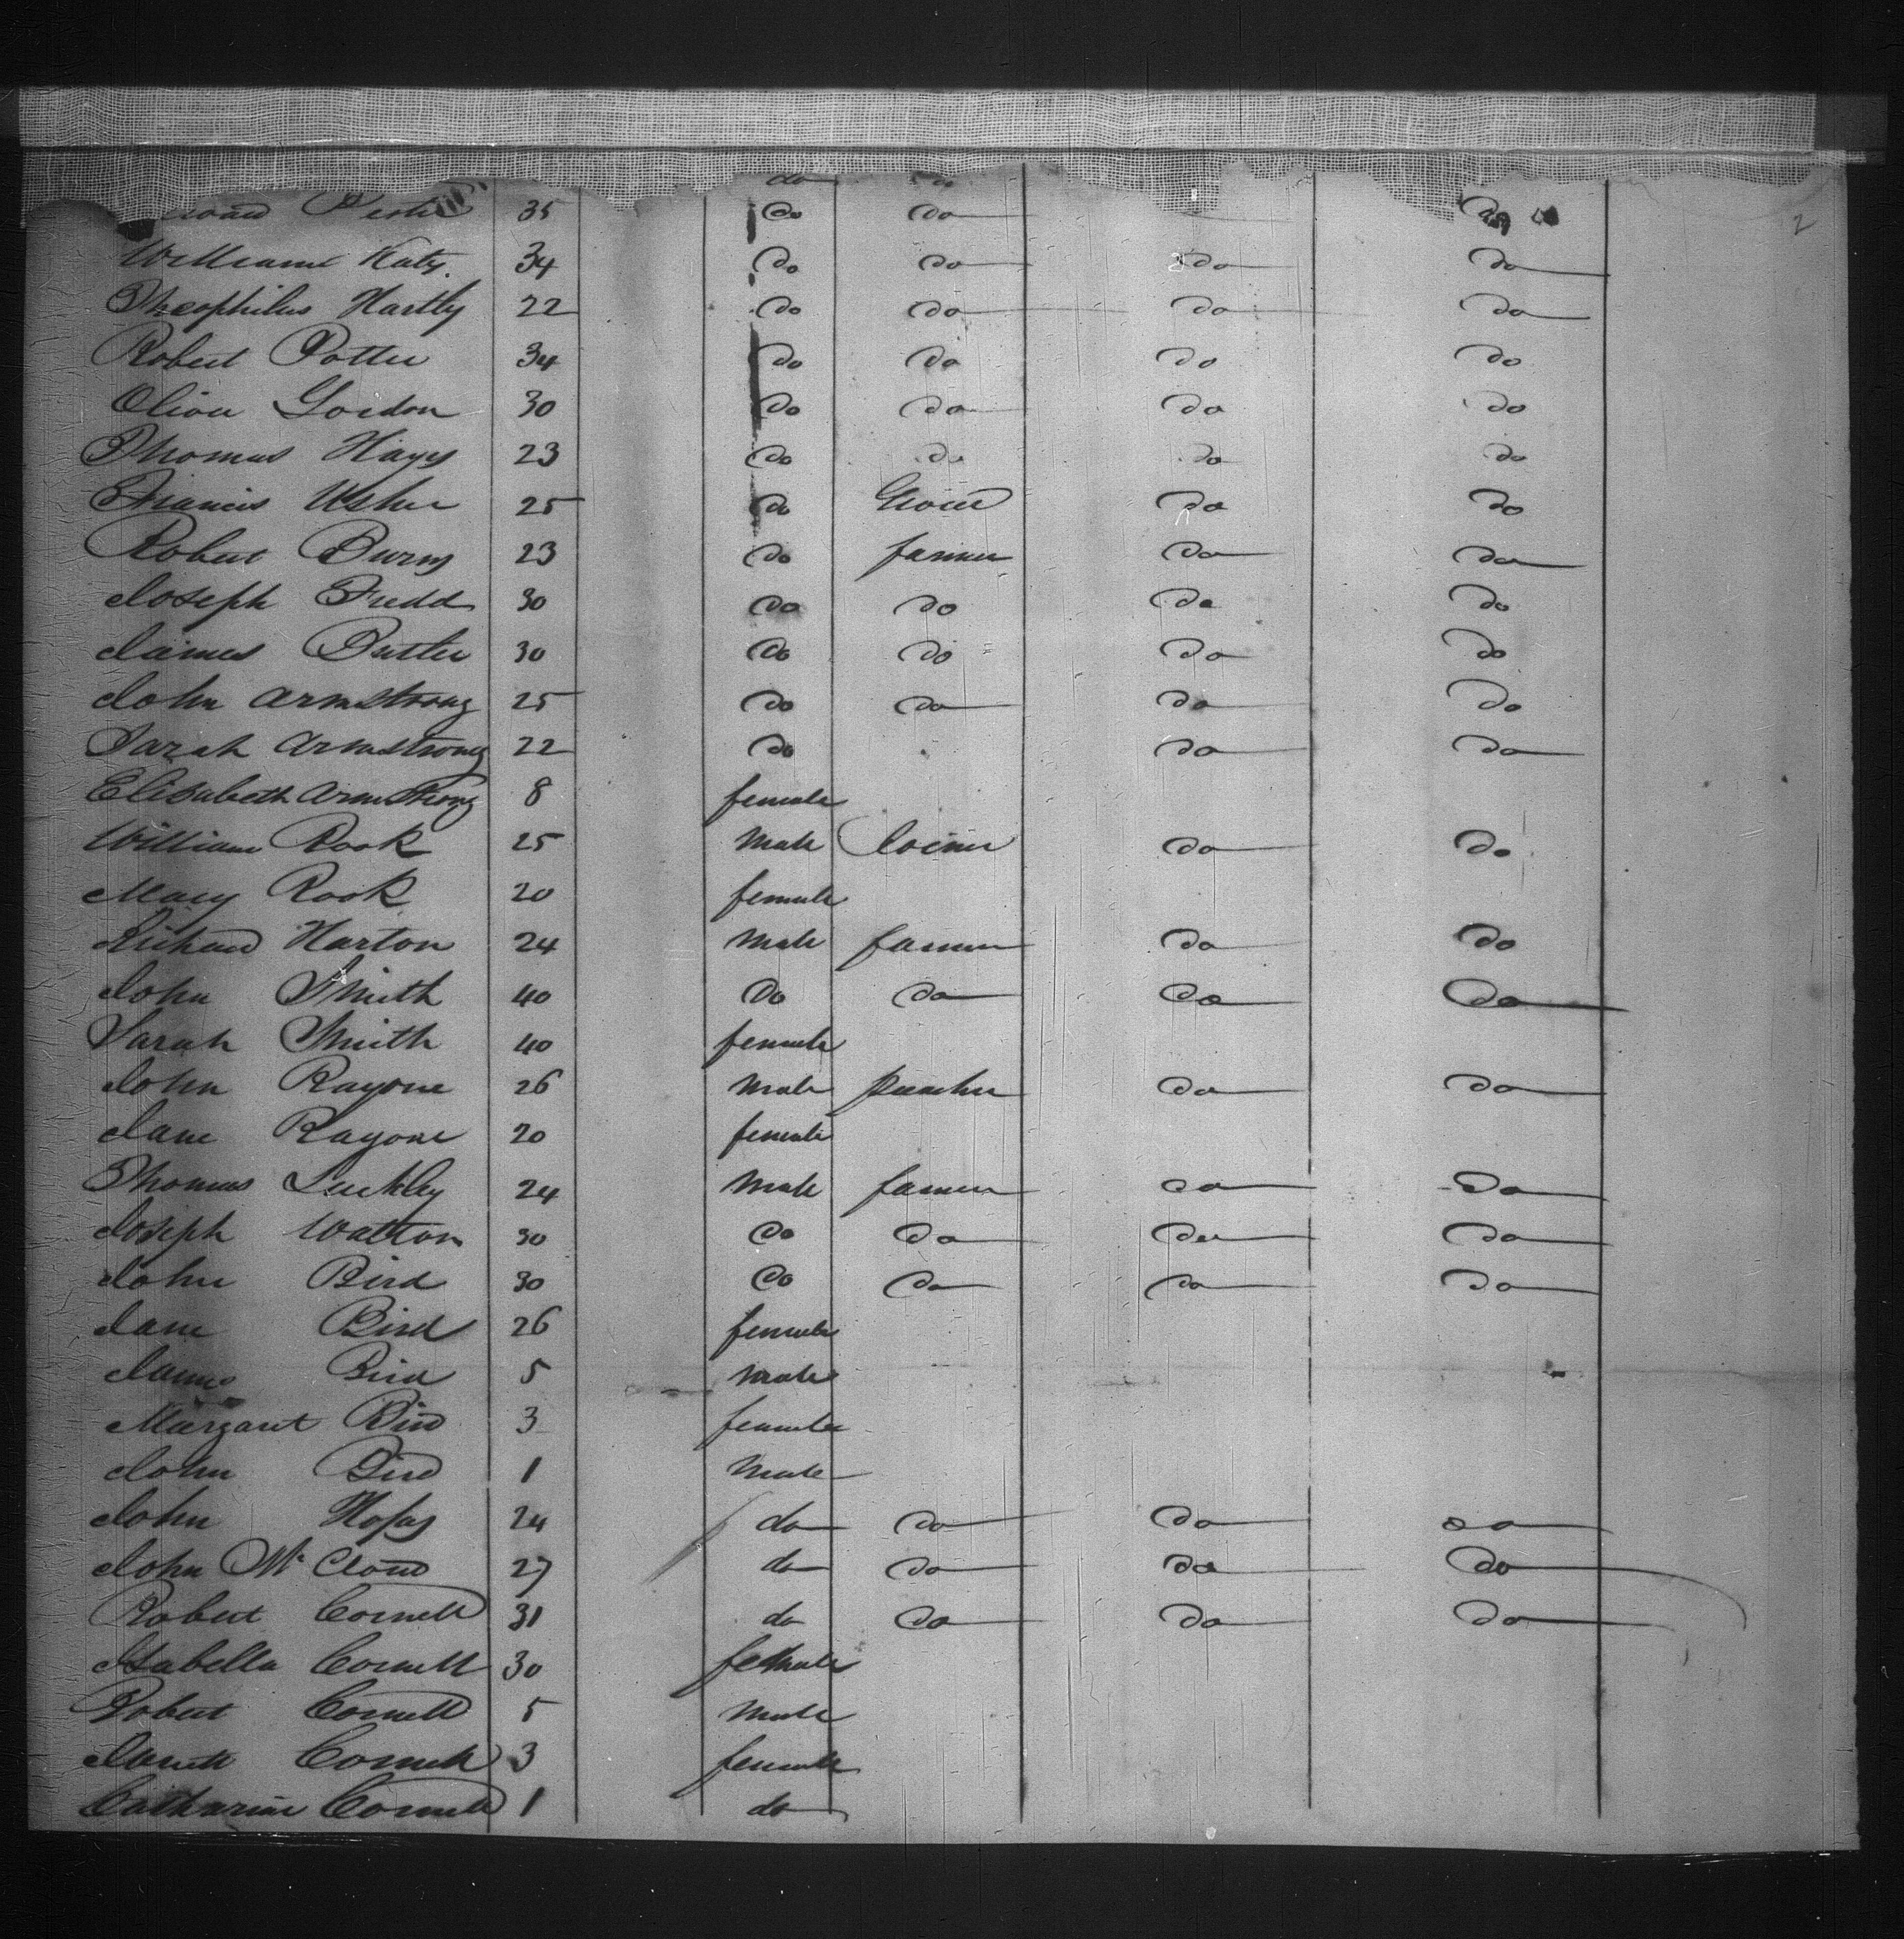 do do
35 do do do 2
William Katy. 34 do do do do
Theophilus Hartly 22 do do do do
Robert Potter 34 do do do do
Gordon 30 do do do do
Thomas Hays 23 do do do do
Francis Usher 25 do Grocer do do
Robert Burns 23 do farmer do do
Joseph Fredd 30 do do do do
James Butler 30 do do do do
John Armstrong 25 do do do do
Sarah Armstrong 22 do do do
Elisabeth Armstrong 8 female
William Rook 25 Male Joiner do do
Mary Rook 20 female
Richard Harton 24 Male farmer do do
John Smith 40 do do do do
Sarah Smith 40 female
John Rayone 26 Male do do
Jane Rayone 20 female
Thomas Luckley 24 Male farmer do do
Joseph Walton 30 do do do do
John Bird 30 do do do do
Jane Bird 26 female
James Bird 5 Male
Margaret Bird 3 female
John Bird 1 Male
John 24 do do do do
John Mc Cloud 27 do do do do
Robert Cornell 31 do do do do
Isabella Cornell 30 female
Robert Cornell 5 Male
Cornell 3 female
Catharine Cornell 1 do